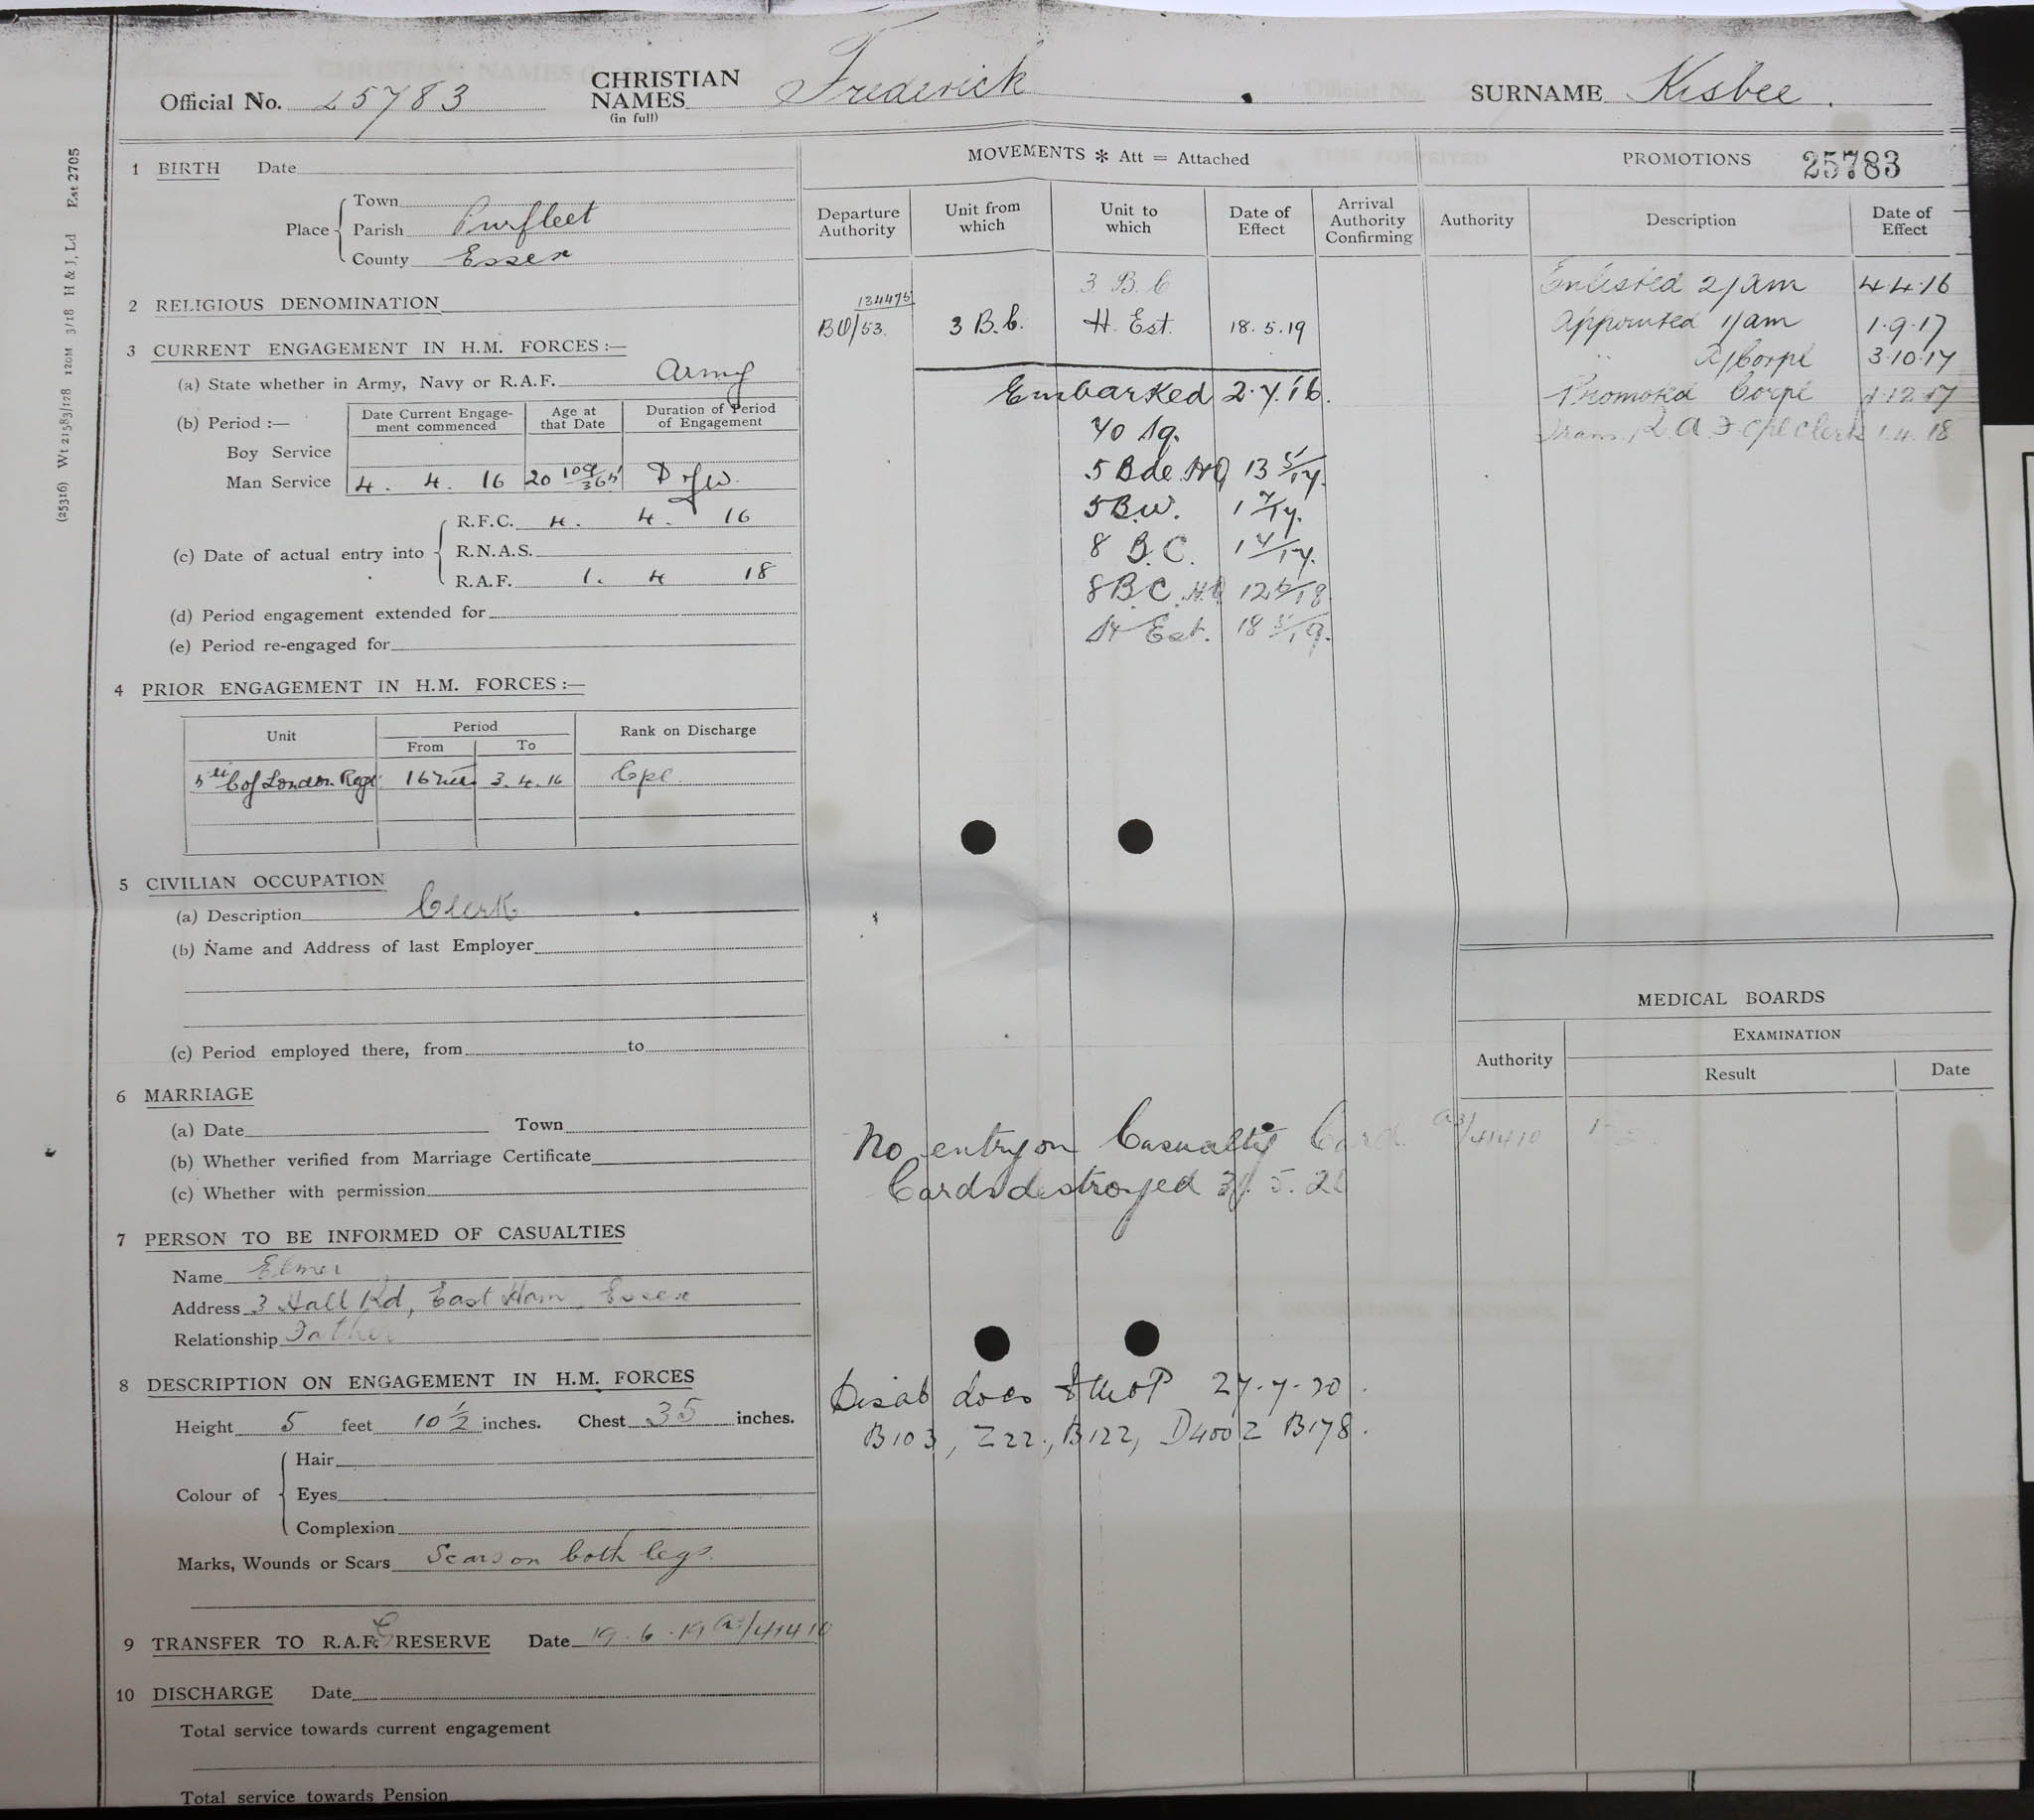 Official No. 25783 CHRISTIAN NAMES (in full) Frederick SURNAME Kisbee.
(25316) Wt 21583/128 120M 3/18 H & J, Ld Est 2705
1 BIRTH Date
Place Town
Parish Purfleet
County Essex
2 RELIGIOUS DENOMINATION
3 CURRENT ENGAGEMENT IN H.M. FORCES :—
(a) State whether in Army, Navy or R.A.F. Army
(b) Period :— Date Current Engage-ment commenced Age at that Date Duration of Period of Engagement
Boy Service
Man Service 4. 4. 16 20 109/365 D of W.
(c) Date of actual entry into R.F.C. 4. 4. 16
R.N.A.S.
R.A.F. 1. 4 18
(d) Period engagement extended for
(e) Period re-engaged for
4 PRIOR ENGAGEMENT IN H.M. FORCES :—
Unit Period Rank on Discharge
From To
5th C of London Regt 3.4.16 Cpl.
5 CIVILIAN OCCUPATION
(a) Description Clerk
(b) Name and Address of last Employer
(c) Period employed there, from to
6 MARRIAGE
(a) Date Town
(b) Whether verified from Marriage Certificate
(c) Whether with permission
7 PERSON TO BE INFORMED OF CASUALTIES
Name Elmer
Address 3 Hall Rd, East Ham, Essex
Relationship Father
8 DESCRIPTION ON ENGAGEMENT IN H.M. FORCES
Height 5 feet 10 1/2 inches. Chest 35 inches.
Colour of Hair
Eyes
Complexion
Marks, Wounds or Scars Scars on both legs.
9 TRANSFER TO R.A.F. RESERVE Date 19.6.19 /41410
10 DISCHARGE Date
Total service towards current engagement
Total service towards Pension
MOVEMENTS * Att = Attached
Departure Authority Unit from which Unit to which Date of Effect Arrival Authority Confirming
3 B.C
134475
BO/53. 3 B.C. H. Est. 18.5.19
Embarked 2.7.16.
70 Sq.
5 Bde. HQ 13 5/17.
5 B.W. 1 7/17.
8 B.C.
8 B.C. HQ
H Est. 18 5/19.
No entry on Casualty Card
Cards destroyed
Disab docs 27-7-20.
B103, Z22., B122, D400Z B178.
PROMOTIONS 25783
Authority Description Date of Effect
Enlisted 2/am 4.4.16
Appointed 1/am 1.9.17
" A/Corpl 3.10.17
Promoted Corpl 1.12.17
Trans. R.A.F. Cpl Clerk 1.4.18
MEDICAL BOARDS
Authority EXAMINATION
Result Date
/41410